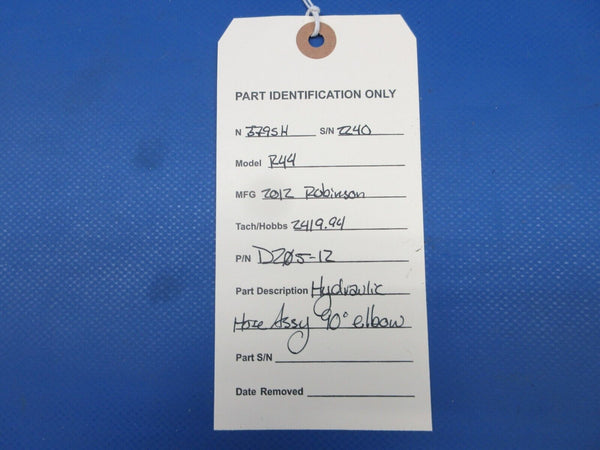 PART IDENTIFICATION ONLY
N 679SH S/N 2240
Model R44
MFG 2012 Robinson
Tach/Hobbs 2419.94
P/N D205-12
Part Description Hydraulic
Hose Assy 90° elbow
Part S/N
Date Removed